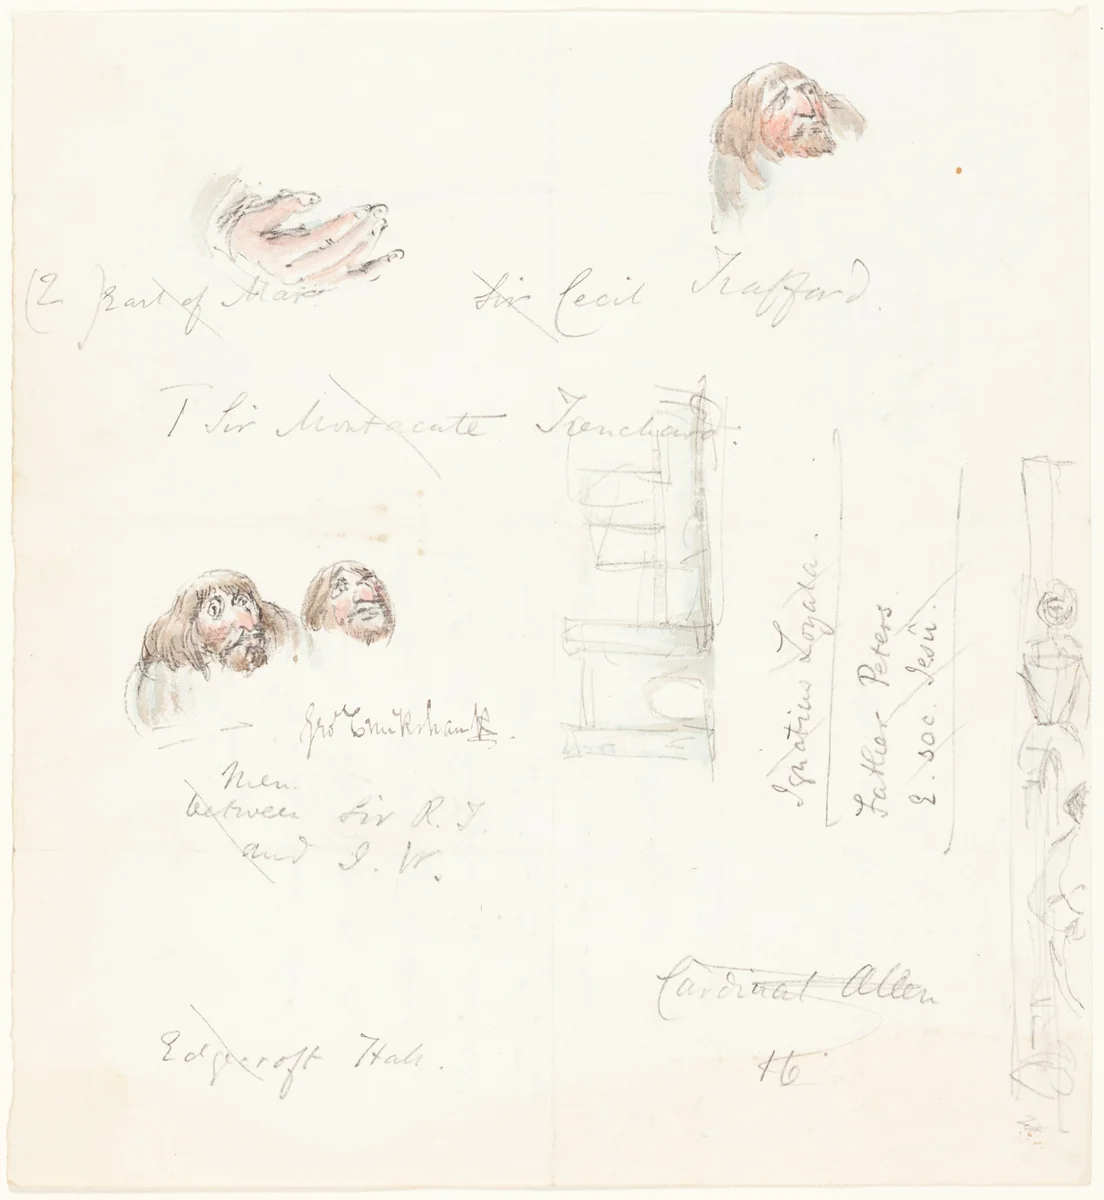 (E Earl of Mar
Sir Cecil Trafford.
T Sir Montacute Trenchard.
Ignatius Loyala.
Father Peters
E. soc. Jesû.
Geo Cruikshank.
Men.
between Sir R. T.
and I. W.
Cardinal Allen
16
Edgecroft Hall.